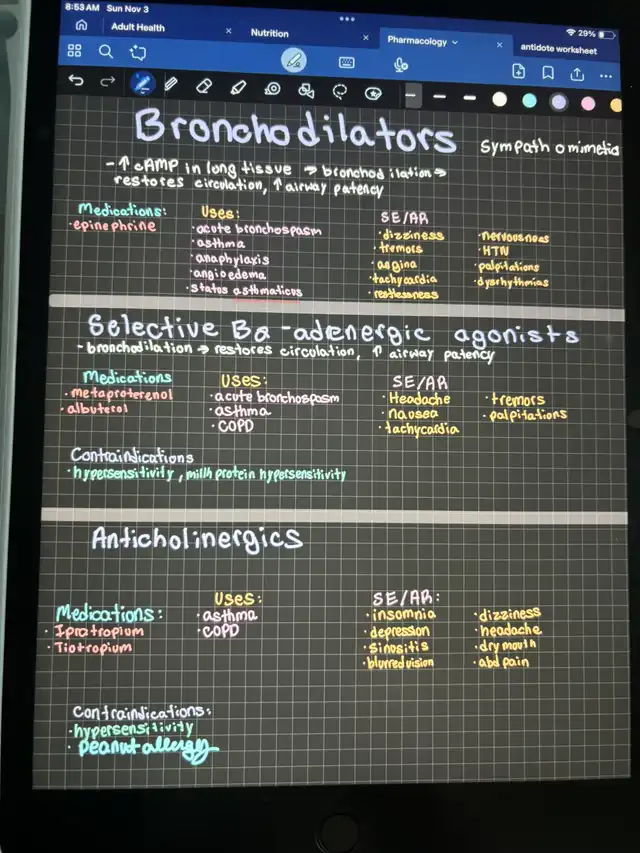 8:53 AM Sun Nov 3
29%
Adult Health
Nutrition
Pharmacology
antidote worksheet
Bronchodilators Sympathomimetic
- ↑ cAMP in long tissue → bronchodilation →
restores circulation, ↑ airway patency
Medications:
• epinephrine
Uses:
• acute bronchospasm
• asthma
• anaphylaxis
• angioedema
• status asthmaticus
SE/AR
• dizziness
• tremors
• angina
• tachycardia
• restlessness
• nervousness
• HTN
• palpitations
• dysrhythmias
Selective Ba-adenergic agonists
- bronchodilation → restores circulation, ↑ airway patency
Medications
• metaproterenol
• albuterol
Uses:
• acute bronchospasm
• asthma
• COPD
SE/AR
• Headache
• nausea
• tachycardia
• tremors
• palpitations
Contraindications
• hypersensitivity, milk protein hypersensitivity
Anticholinergics
Medications:
• Ipratropium
• Tiotropium
Uses:
• asthma
• COPD
SE/AR:
• insomnia
• depression
• sinositis
• blurred vision
• dizziness
• headache
• dry mouth
• abd pain
Contraindications:
• hypersensitivity
• peanut allergy